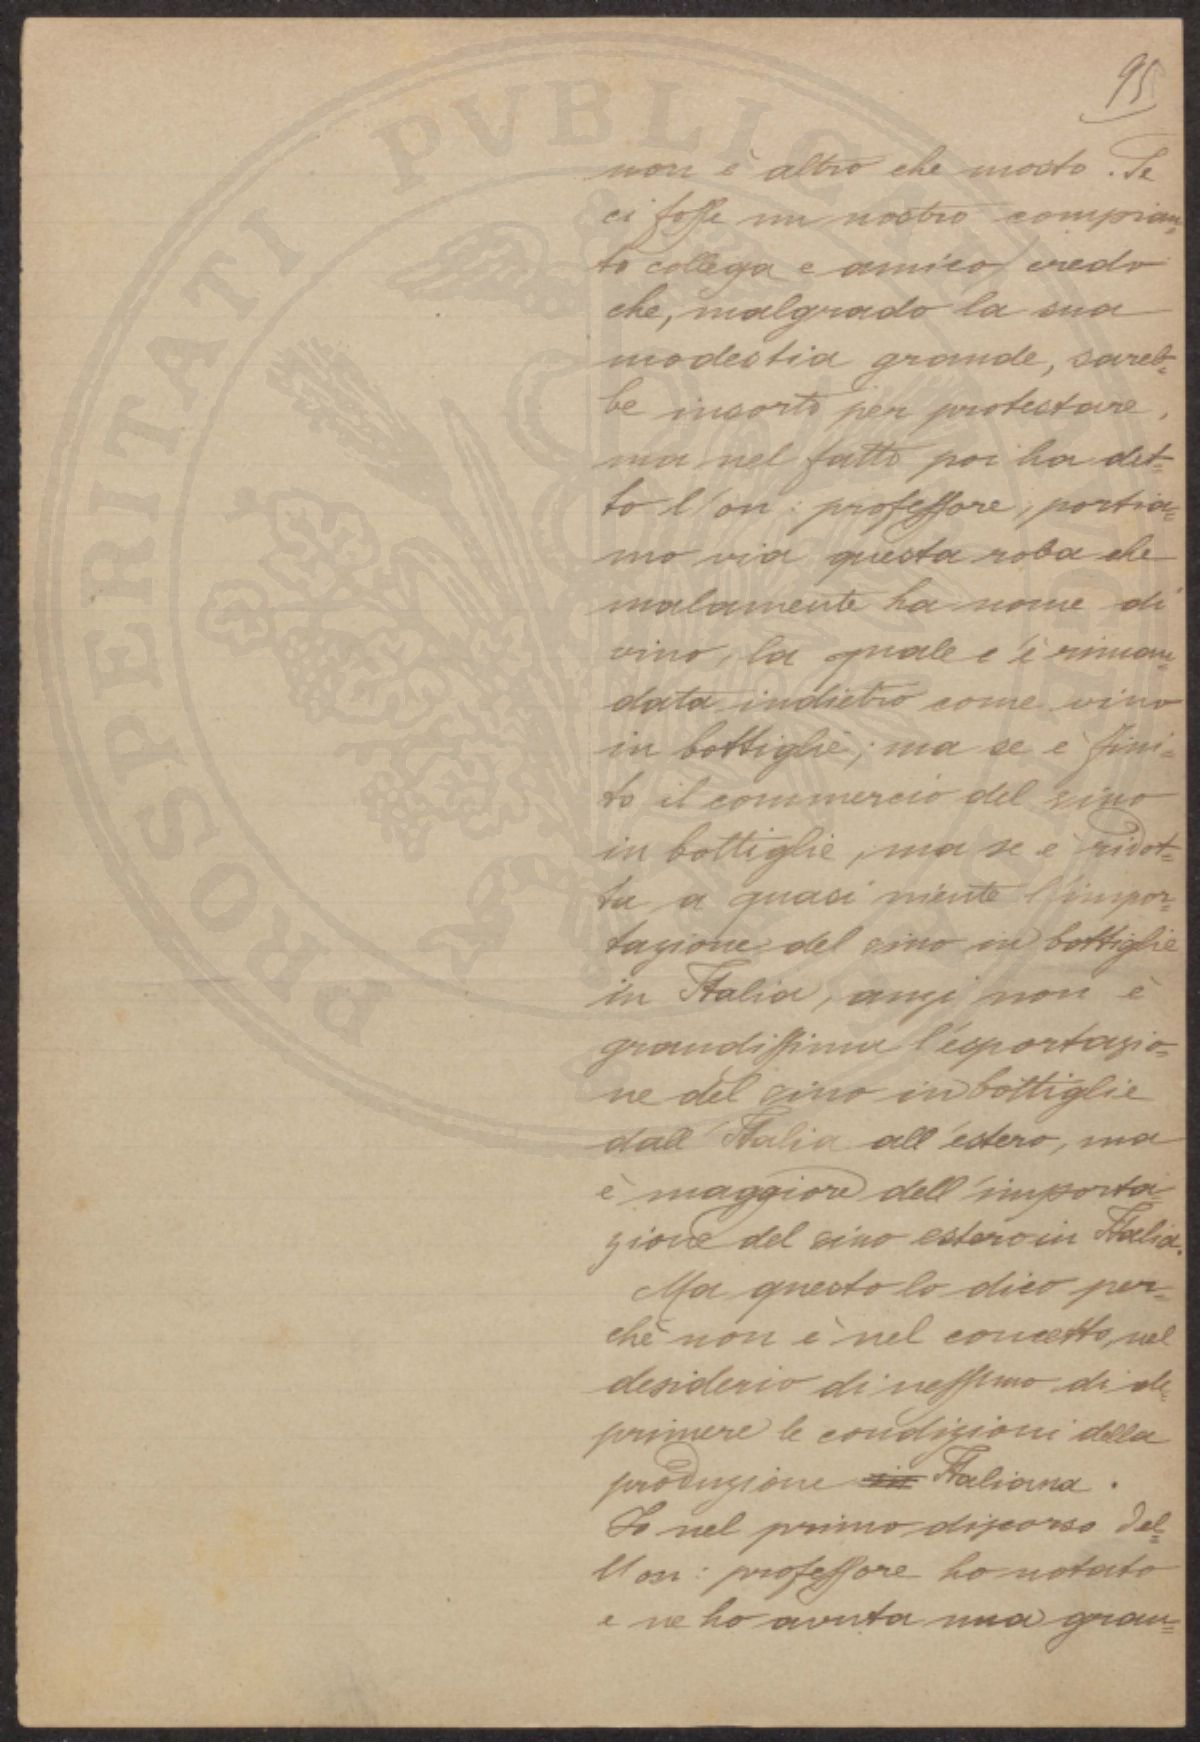 95
non è altro che mosto. Se
ci fosse un nostro compian=
to collega e amico, credo
che, malgrado la sua
modestia grande, sareb=
be insorto per protestare,
ma nel fatto poi ha det=
to l'on: professore, portia=
mo via questa roba che
malamente ha nome di
vino, la quale c'è riman=
data indietro come vino
in bottiglie; ma se è fini=
to il commercio del vino
in bottiglie, ma se è ridot=
ta a quasi niente l'impor=
tazione del vino in bottiglie
in Italia, anzi non è
grandissima l'esportazio=
ne del vino in bottiglie
dall'Italia all'estero, ma
è maggiore dell'importa=
zione del vino estero in Italia.
Ma questo lo dico per=
chè non è nel concetto, nel
desiderio di nessuno di de=
primere le condizioni della
produzione in Italiana.
Io nel primo discorso del=
l'on: professore ho notato
e ne ho avuta una gran=
PROSPERITATI PVBLICAE